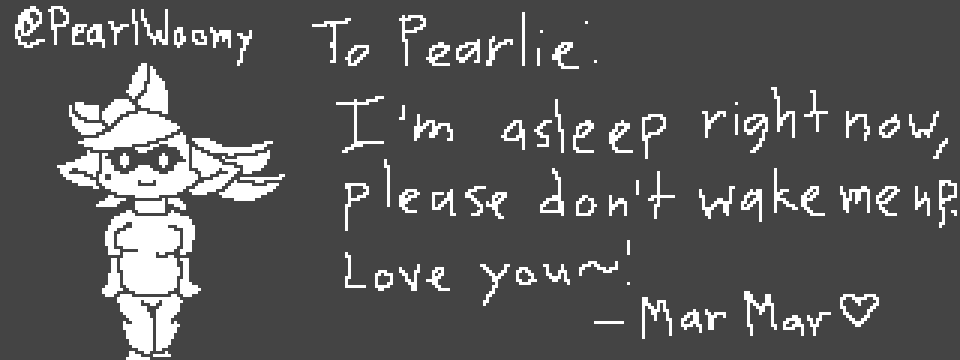 @PearlWoomy
To Pearlie:
I'm asleep right now,
please don't wake me up.
Love you~!
- Mar Mar ♡